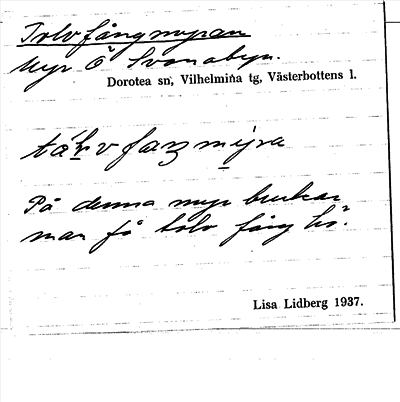 Tolvfångmyran
Myr Ö Svanabyn.
Dorotea sn, Vilhelmina tg, Västerbottens l.
På denna myr brukar
man få tolv fång hö.
Lisa Lidberg 1937.